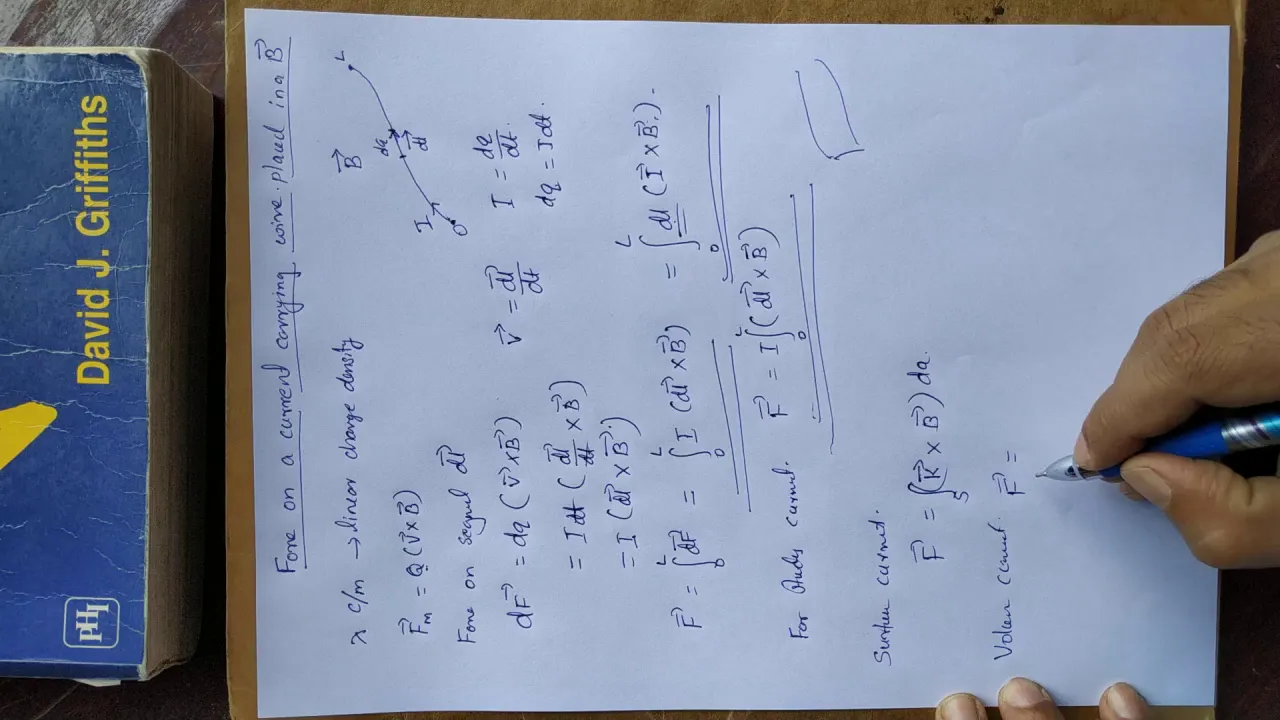 David J. Griffiths
PHI
Force on a current carrying wire placed in a B⃗
λ C/m → linear charge density
B⃗
dq
dl⃗
I
O
L
F⃗m = Q (v⃗ × B⃗)
Force on segment dl⃗
dF⃗ = dq (v⃗ × B⃗) v⃗ = dl⃗/dt I = dq/dt.
= I dt (dl⃗/dt × B⃗) dq = I dt.
= I (dl⃗ × B⃗).
F⃗ = ∫₀ᴸ dF⃗ = ∫₀ᴸ I (dl⃗ × B⃗) = ∫₀ᴸ dl (I⃗ × B⃗).
For steady current. F⃗ = I ∫₀ᴸ (dl⃗ × B⃗)
Surface current.
F⃗ = ∫S (K⃗ × B⃗) da.
Volume current. F⃗ =